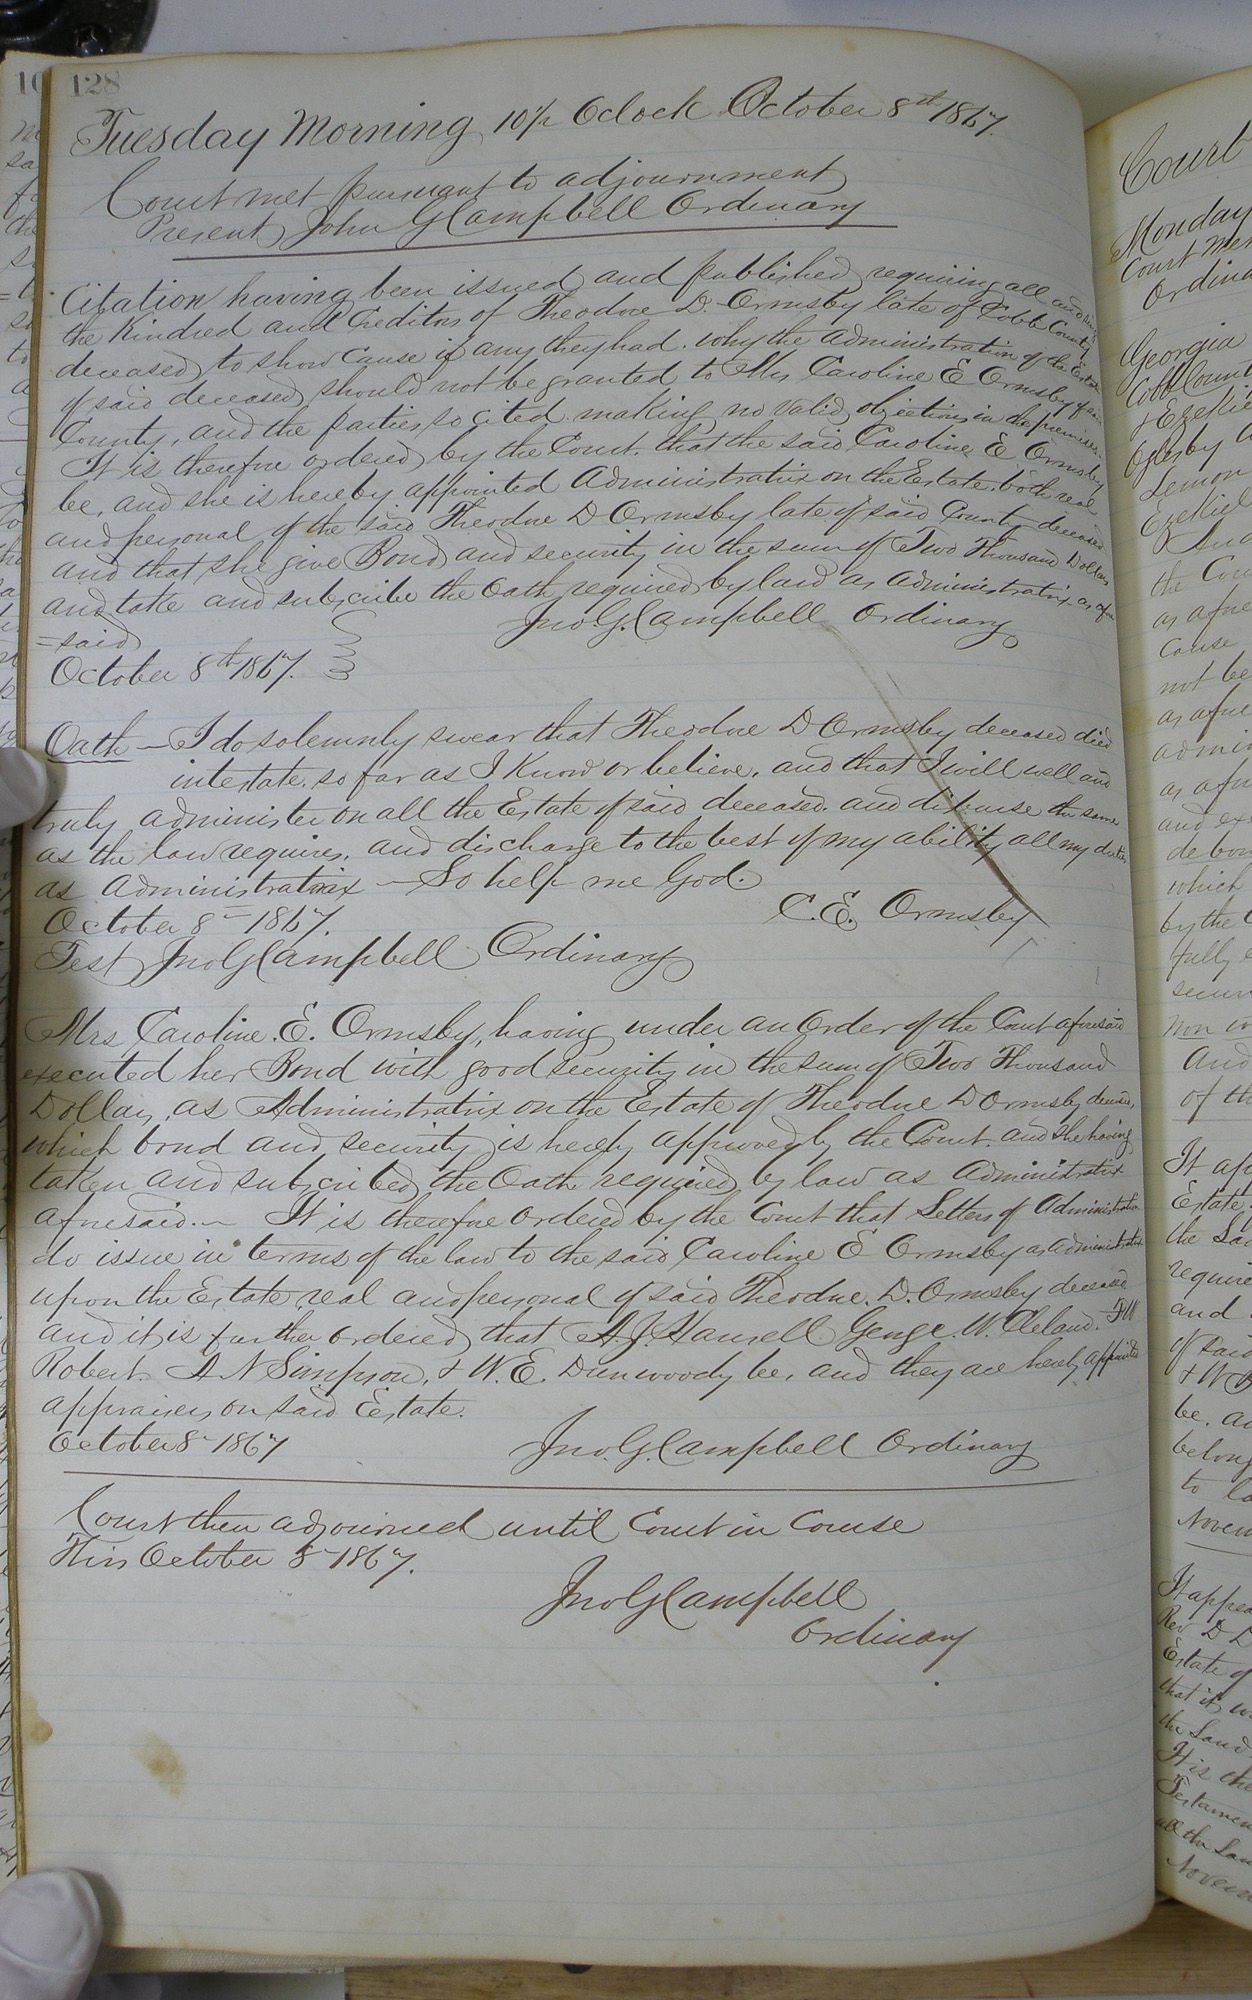 128
Tuesday Morning 10 Oclock October 8th 1867.
Court met pursuant to adjournment
Present John G Campbell Ordinary
Citation having been issued and published requiring all and
the Kindred and Creditors of Theodore D. Ormsby late of Cobb County
deceased, to show Cause if any they had. why the administration of the Estate
of said deceased should not be granted to Mrs Caroline E Ormsby of said
County, and the parties so cited making no valid objections in the premises.
It is therefore ordered by the Court. that the said Caroline E Ormsby
be, and she is hereby appointed Administratrix on the Estate. both real
and personal of the said Theodore D Ormsby late of said County deceased
and that she give Bond and security in the sum of Two Thousand Dollars
and take and subscribe the Oath required by law as administratrix as afore
=said
Jno. G. Campbell Ordinary
October 8th 1867.
Oath – I do solemnly swear that Theodore D Ormsby deceased died
intestate. so far as I Know or believe. and that I will well and
truly administer on all the Estate of said deceased. and disburse the same
as the law requires. and discharge to the best of my ability all my duties
as Administratrix – So help me God.
C.E. Ormsby
October 8 – 1867.
Test Jno G Campbell Ordinary
Mrs Caroline. E. Ormsby, having under an order of the Court aforesaid
executed her Bond with good security in the sum of Two Thousand
Dollars, as Administratrix on the Estate of Theodore D Ormsby
which bond and security is hereby approved by the Court. and she having
taken and subscribed the Oath required by law as Administratrix
aforesaid. – It is therefore ordered by the Court that Letters of Administration
do issue in terms of the law to the said Caroline E Ormsby as Administratrix
upon the Estate real and personal of said Theodore. D. Ormsby
and it is further ordered that A. J. Hansell George. W. Cleland.
Robert. A N Simpson, + W. E. Dunwoody be, and they are hereby appointed
appraisers on said Estate.
October 8 – 1867
Jno. G. Campbell Ordinary
Court then adjourned until Court in Course
This October 8 – 1867.
Jno G Campbell
Ordinary
Court
Monday
Court
Georgia
Lemon
the Cou
Cause
not be
and
by the
fully
And
of th
It ap
Estate
require
and
be.
belong
to
Novem
It appea
Rev D D
Estate of
that it
It is
Testamen
Novem